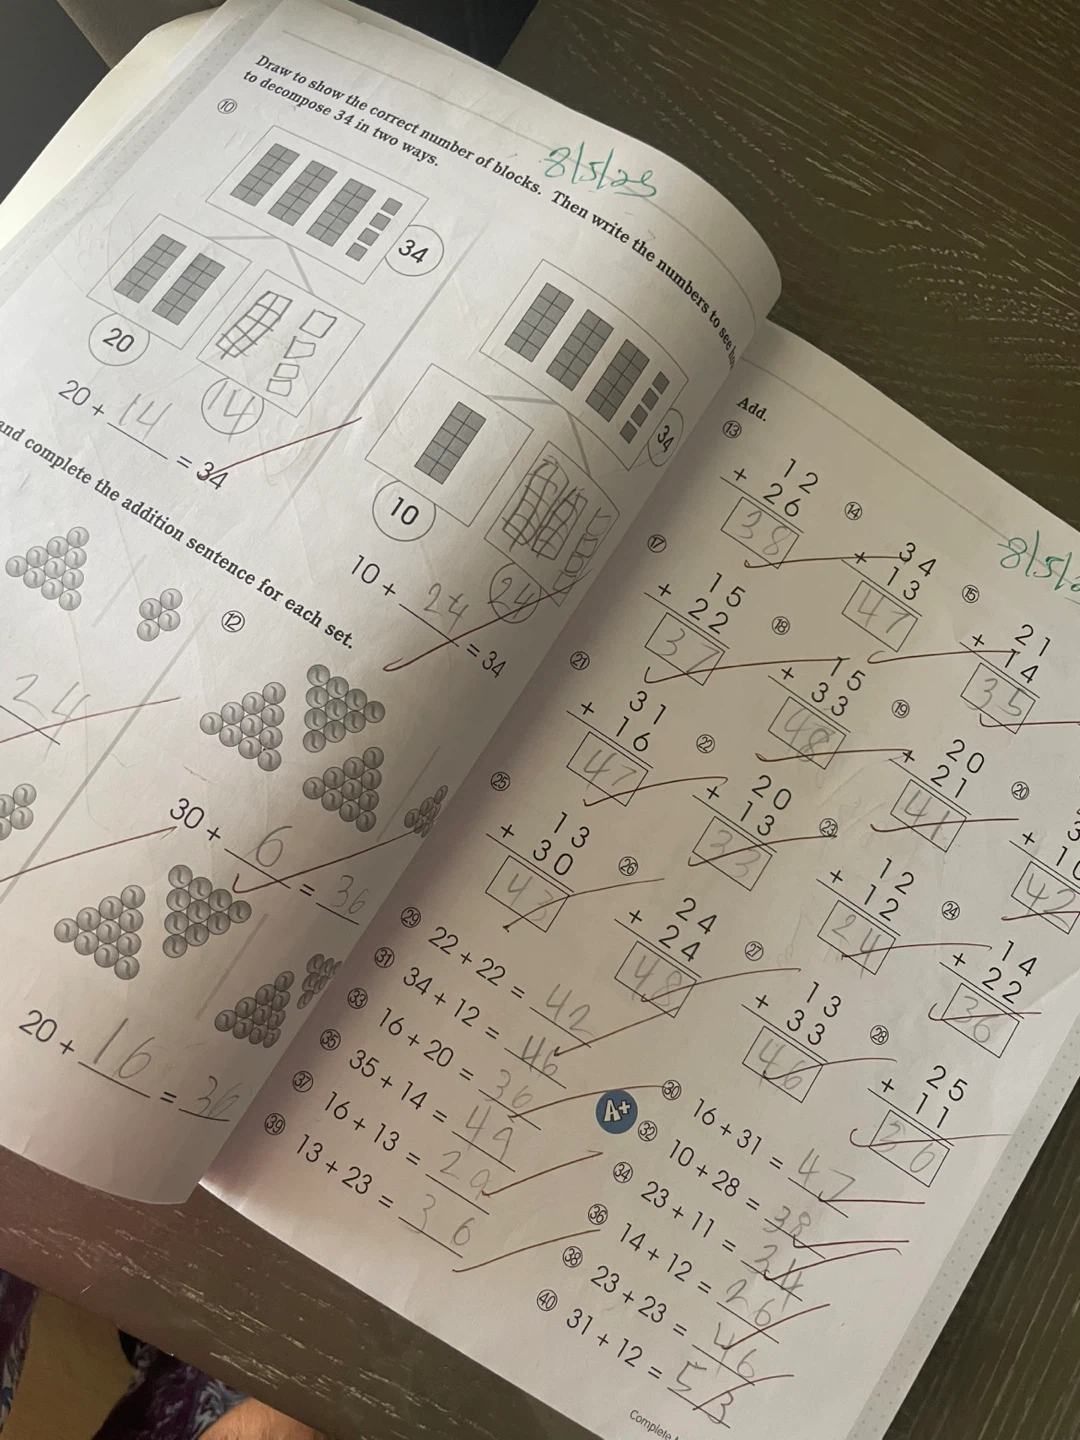 Draw to show the correct number of blocks. Then write the numbers to see
to decompose 34 in two ways.
8/5/25
10
34
20
14
20 + 14 = 34
34
10
24
10 + 24 = 34
and complete the addition sentence for each set.
24
12
30 + 6 = 36
20 + 16 = 36
8/5/2
Add.
13
12
+ 26
38
14
34
+ 13
47
15
21
+ 14
35
17
15
+ 22
37
18
15
+ 33
48
19
20
+ 21
41
20
3
+ 10
42
21
31
+ 16
47
22
20
+ 13
33
23
12
+ 12
24
24
14
+ 22
36
25
13
+ 30
43
26
24
+ 24
48
27
13
+ 33
46
28
25
+ 11
36
29 22 + 22 = 42
30 16 + 31 = 47
31 34 + 12 = 46
32 10 + 28 = 38
33 16 + 20 = 36
34 23 + 11 = 34
35 35 + 14 = 49
36 14 + 12 = 26
37 16 + 13 = 29
38 23 + 23 = 46
39 13 + 23 = 36
40 31 + 12 = 53
A+
Complete